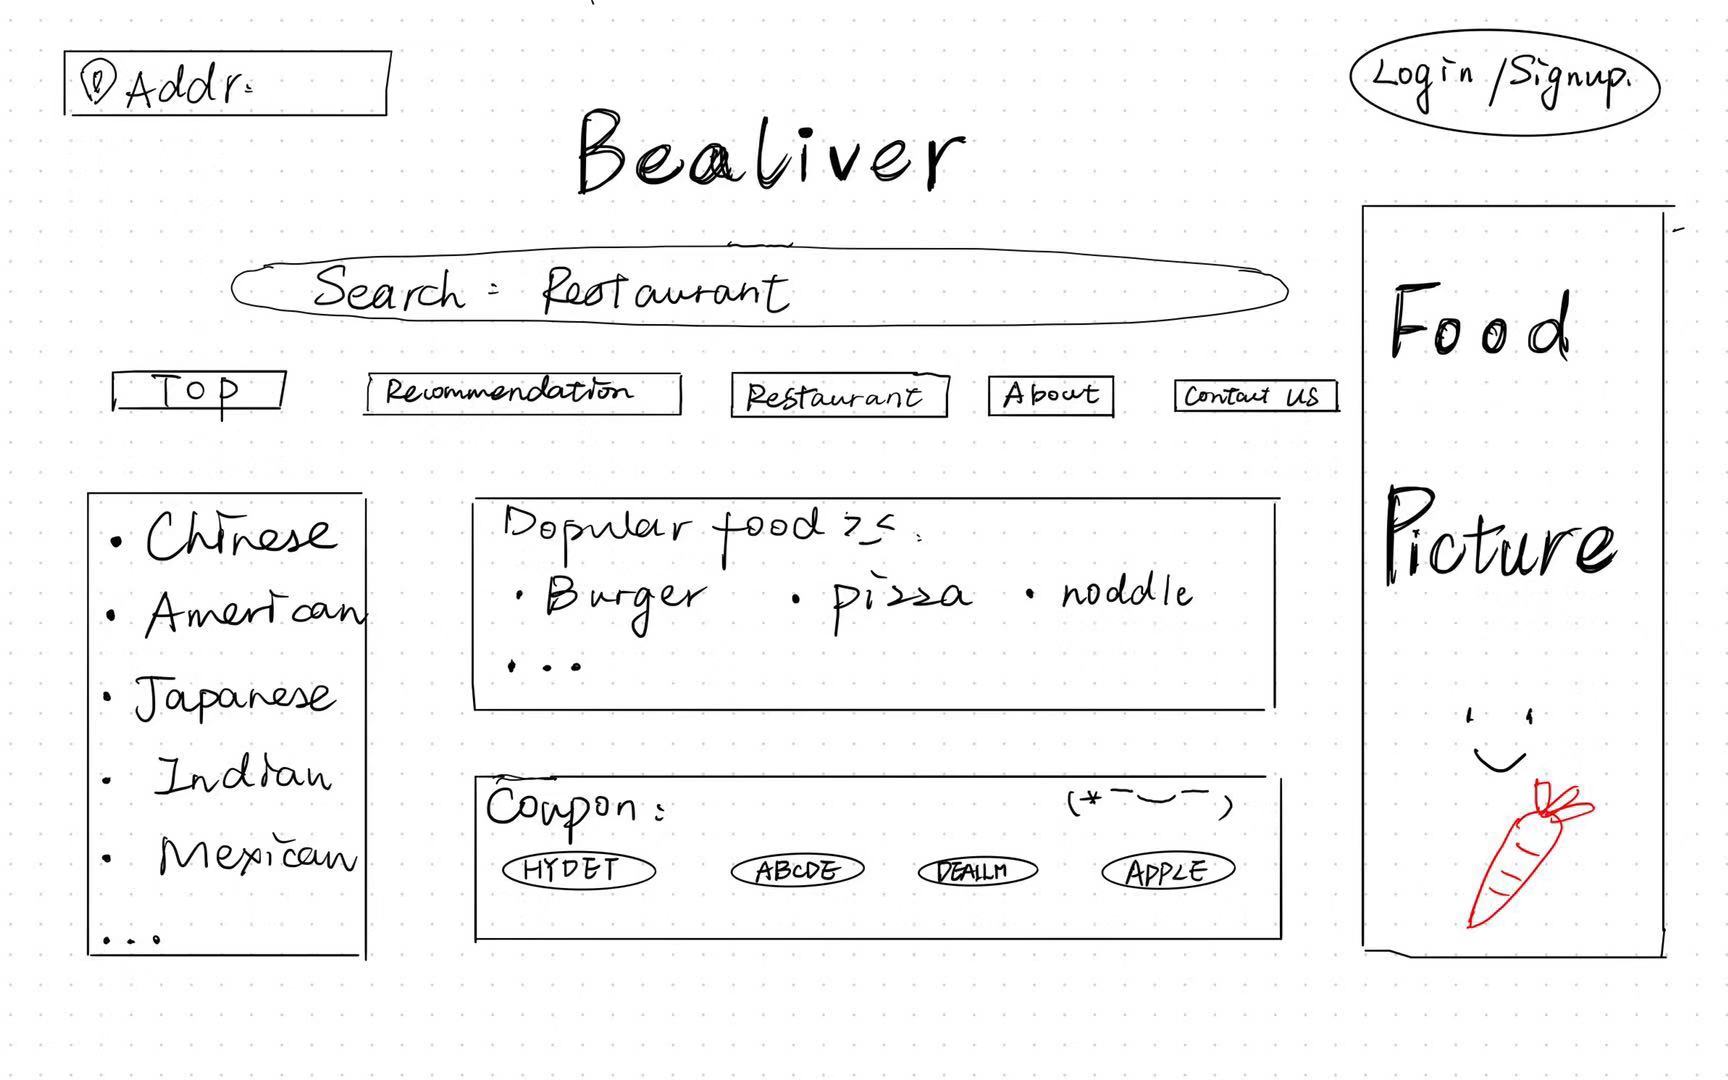 Addr:
Login /Signup.
Bealiver
Search: Restaurant
Top
Recommendation
Restaurant
About
Contact US
• Chinese
• American
• Japanese
• Indian
• Mexican
...
Popular food
• Burger • pizza • noddle
...
Coupon: (*¯‿¯)
HYDET
ABCDE
APPLE
Food
Picture